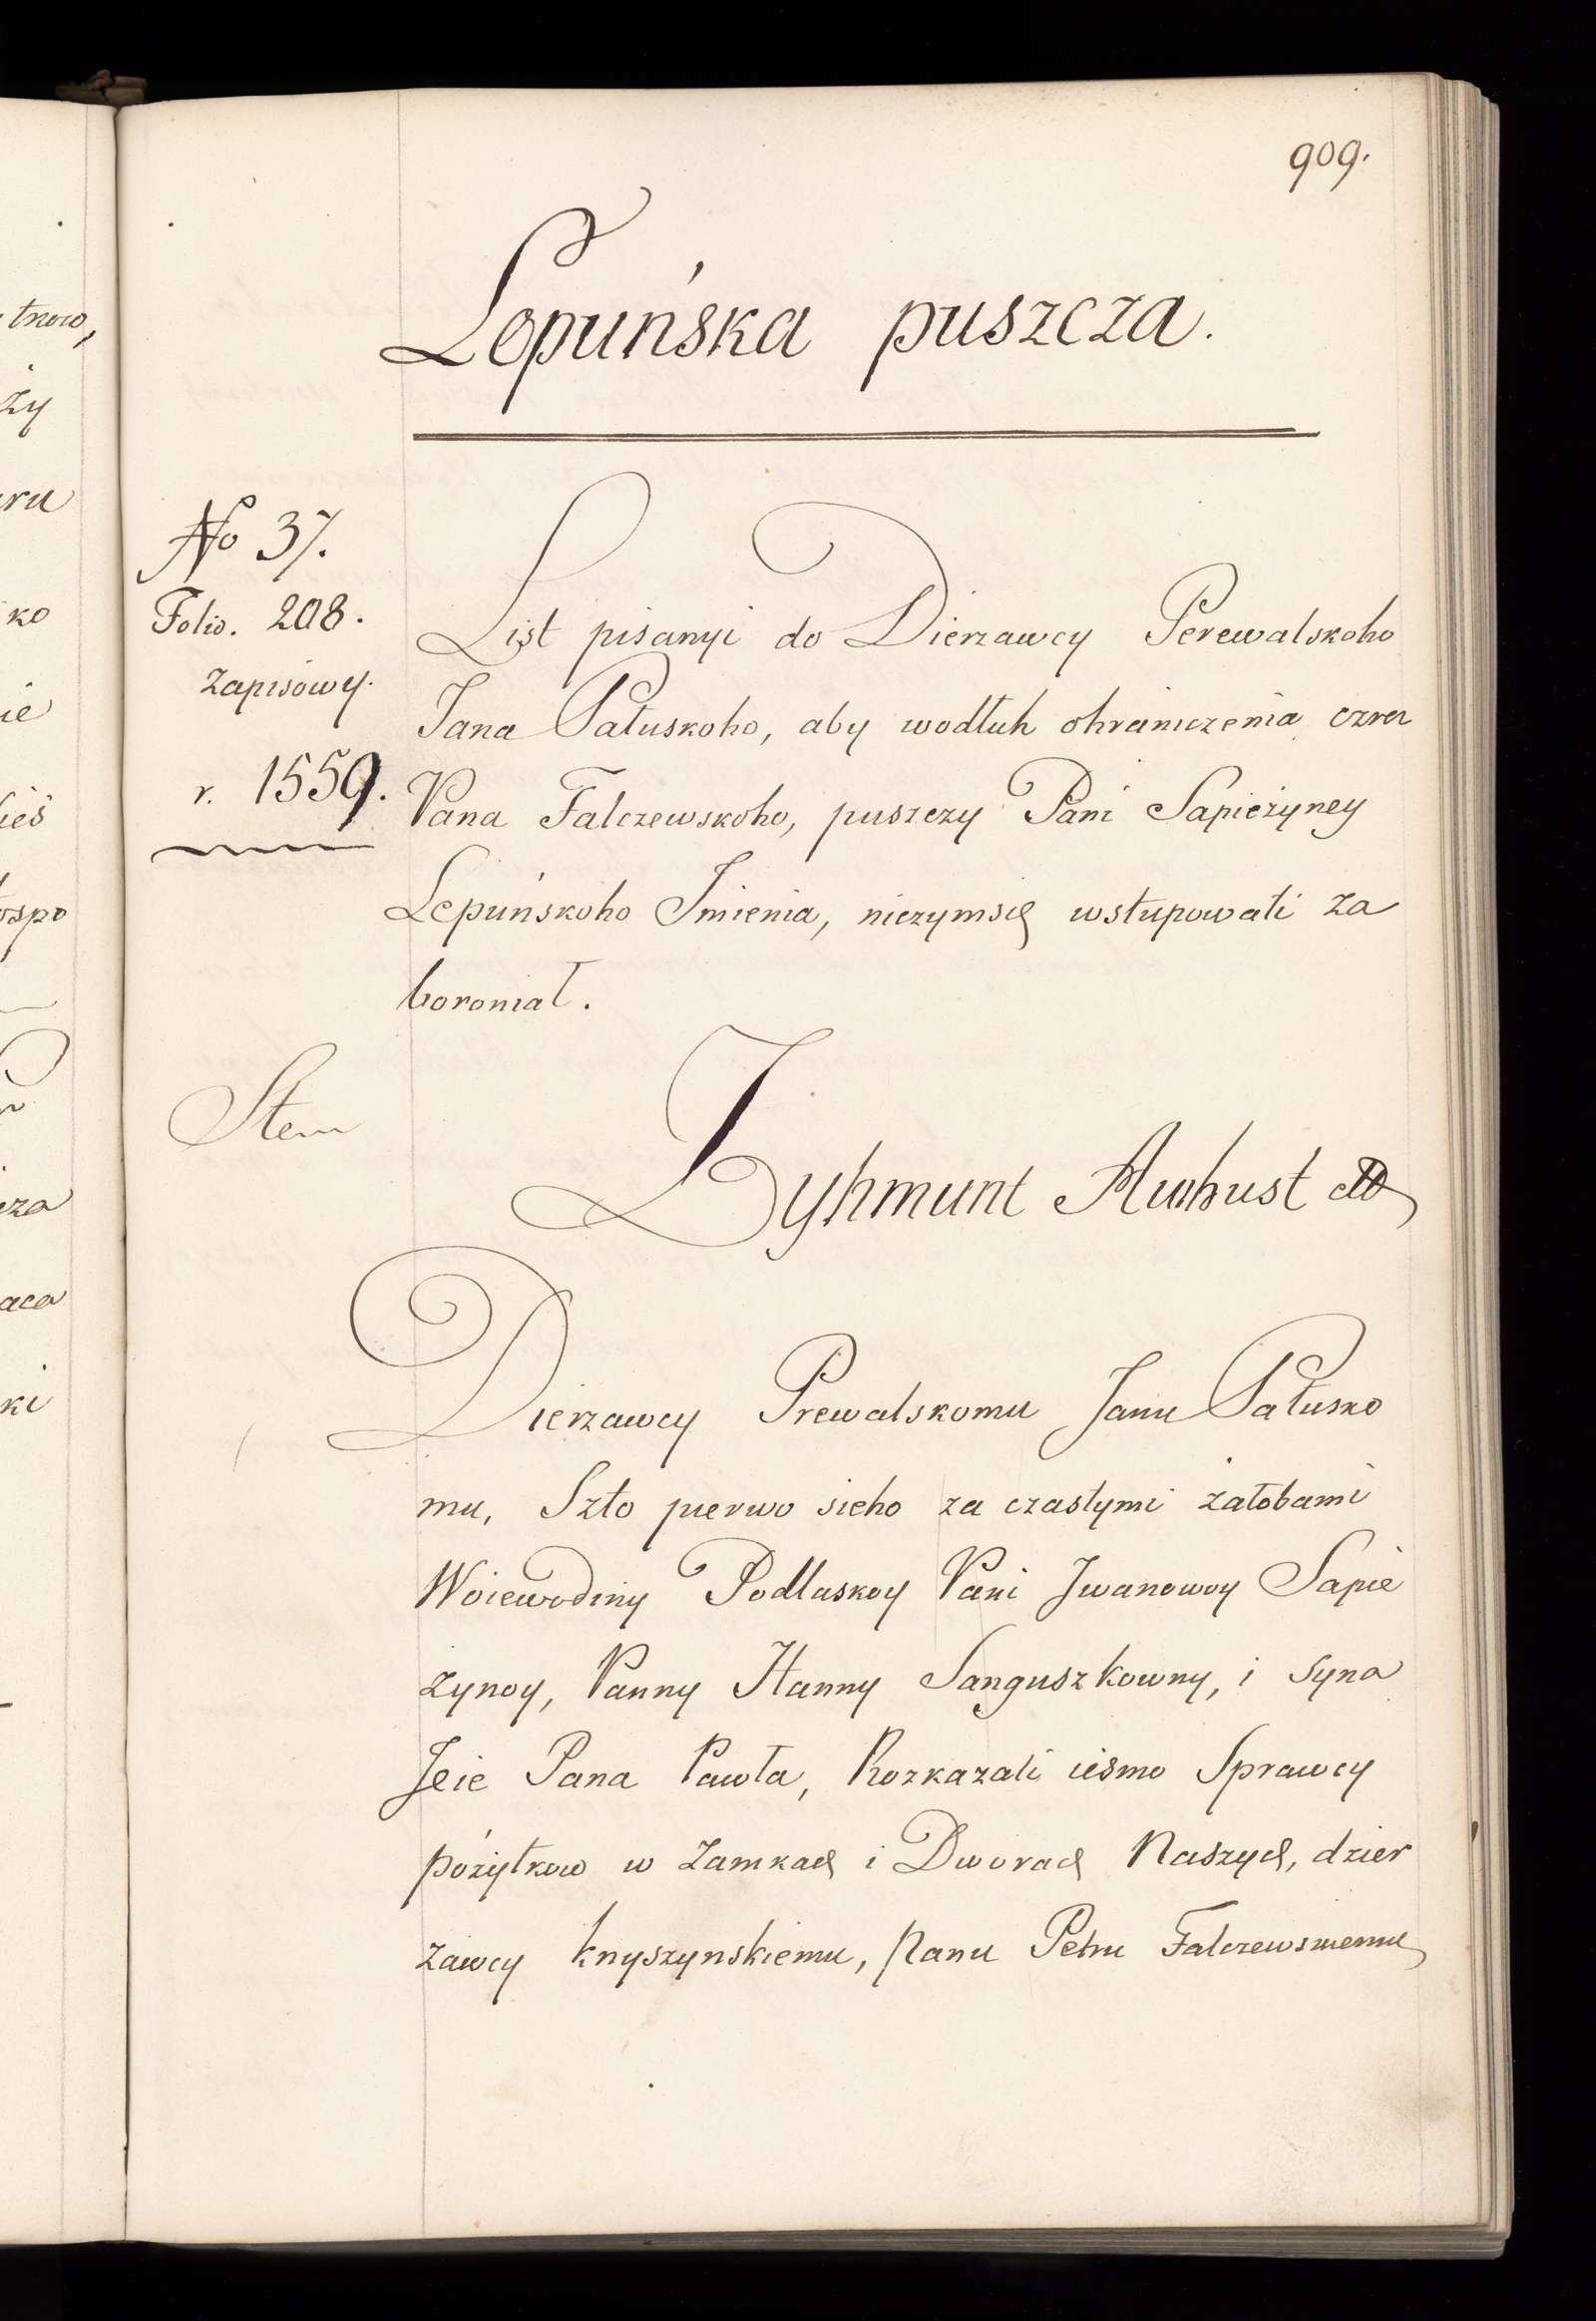 909.
Lepuńska puszcza.
No 37.
Folio. 208.
zapisowy.
r. 1559.
List pisanyi do Dierzawcy Perewalskoho
Jana Pałuskoho, aby wodłuh ohraniczenia czrez
Pana Falczewskoho, puszczy Pani Sapieżyney
Lepuńskoho Jmienia, niczymsię wstupowati za
boroniał.
Stem
Zyhmunt Auhust
Dierzawcy Prewalskomu Janu Pałusko
mu, Szto pierwo sieho za czastymi żałobami
Woiewodiny Podlaskoy Pani Jwanowoy Sapie
zynoy, Panny Hanny Sanguszkowny, i Syna
Jeie Pana Pawła, Rozkazali iesmo Sprawcy
pożytkow w Zamkach i Dworach Naszych, dzier
zawcy knyszynskiemu, Panu Petru Falczewskiemu
tnow,
ży
ru
ko
ie
ieś
ospo
za
aca
ki